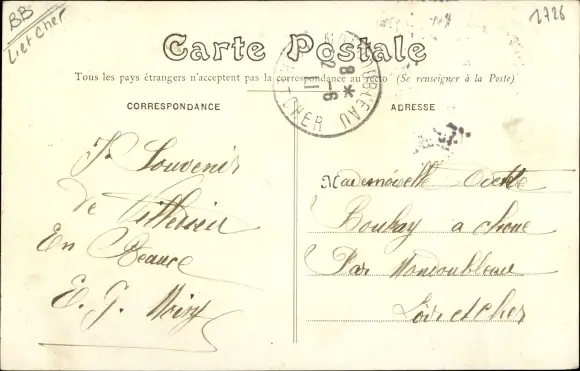 BB
Loir et Cher
1726
Carte Postale
Tous les pays étrangers n'acceptent pas la correspondance au recto (Se renseigner à la Poste)
CORRESPONDANCE
ADRESSE
MONDOUBLEAU
8 *
2 -6
11
-CHER
Souvenir
de
En Beauce
E. G.
Mademoiselle Odette
Bouhay a choue
Par Mondoubleau
Loir et cher